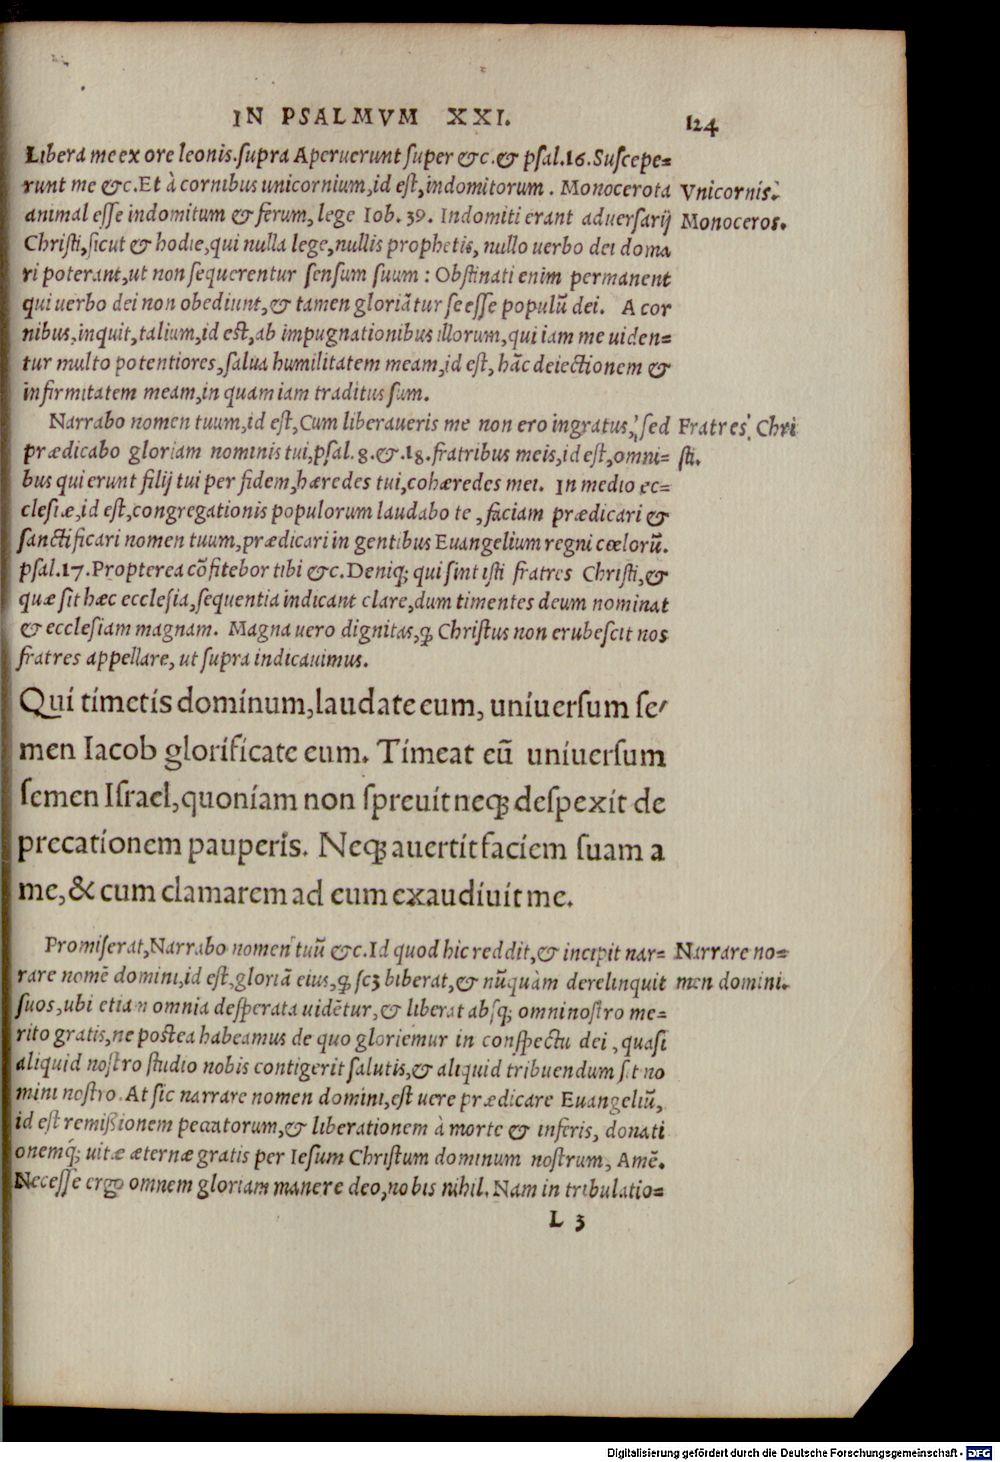 IN PSALMVM XXI. 124
Libera me ex ore leonis. supra Aperuerunt super &c. & psal. 16. Suscepe=
runt me &c. Et à cornibus unicornium, id est, indomitorum. Monocerota
Vnicornis.
animal esse indomitum & ferum, lege Iob. 39. Indomiti erant aduersarij
Monoceros.
Christi, sicut & hodie, qui nulla lege, nullis prophetis, nullo uerbo dei doma
ri poterant, ut non sequerentur sensum suum: Obstinati enim permanent
qui uerbo dei non obediunt, & tamen gloriãtur se esse populũ dei. A cor
nibus, inquit, talium, id est, ab impugnationibus illorum, qui iam me uiden=
tur multo potentiores, salua humilitatem meam, id est, hãc deiectionem &
infirmitatem meam, in quam iam traditus sum.
Narrabo nomen tuum, id est, Cum liberaueris me non ero ingratus, sed
Fratres Chri
prædicabo gloriam nominis tui, psal. 8. &. 18. fratribus meis, id est, omni=
sti.
bus qui erunt filij tui per fidem, hæredes tui, cohæredes mei. In medio ec=
clesiæ, id est, congregationis populorum laudabo te, faciam prædicari &
sanctificari nomen tuum, prædicari in gentibus Euangelium regni cœlorũ.
psal. 17. Propterea cõfitebor tibi &c. Deniq; qui sint isti fratres Christi, &
quæ sit hæc ecclesia, sequentia indicant clare, dum timentes deum nominat
& ecclesiam magnam. Magna uero dignitas, ꝙ Christus non erubescit nos
fratres appellare, ut supra indicauimus.
Qui timetis dominum, laudate eum, uniuersum se/
men Iacob glorificate eum. Timeat eũ uniuersum
semen Israel, quoniam non spreuit neq; despexit de
precationem pauperis. Neq; auertit faciem suam a
me, & cum clamarem ad eum exaudiuit me.
Promiserat, Narrabo nomen tuũ &c. Id quod hic reddit, & incipit nar=
Narrare no=
rare nomẽ domini, id est, gloriã eius, ꝙ scꝫ biberat, & nũquàm derelinquit
men domini.
suos, ubi etiam omnia desperata uidẽtur, & liberat absq; omni nostro me=
rito gratis, ne postea habeamus de quo gloriemur in conspectu dei, quasi
aliquid nostro studio nobis contigerit salutis, & aliquid tribuendum sit no
mini nostro. At sic narrare nomen domini, est uere prædicare Euangeliũ,
id est remißionem peccatorum, & liberationem à morte & inferis, donati
onemq́; uitæ æternæ gratis per Iesum Christum dominum nostrum, Amẽ.
Necesse ergo omnem gloriam manere deo, nobis nihil. Nam in tribulatio=
L 3
Digitalisierung gefördert durch die Deutsche Forschungsgemeinschaft - DFG